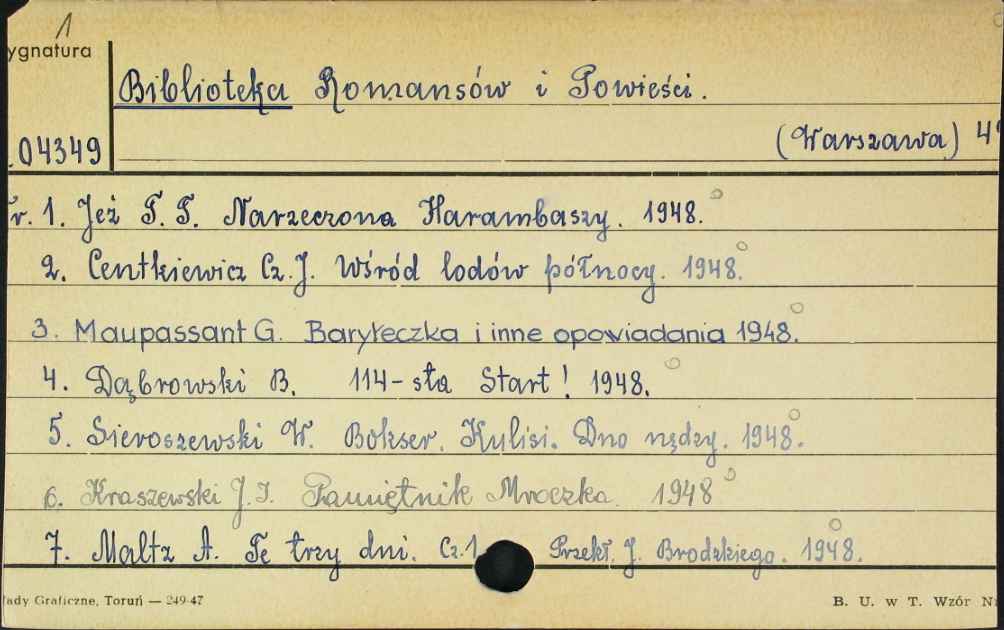 1
ygnatura
Biblioteka Romansów i Powieści.
04349
(Warszawa) 4
r. 1. Jeż T. T. Narzeczona Harambaszy. 1948.
2. Centkiewicz Cz. J. Wśród lodów północy. 1948.
3. Maupassant G. Baryłeczka i inne opowiadania 1948.
4. Dąbrowski B. 114-sta Start! 1948.
5. Sieroszewski W. Bokser. Kulisi. Dno nędzy. 1948.
6. Kraszewski J. I. Pamiętnik Mroczka. 1948
7. Maltz A. Te trzy dni. Cz.1 Przekł. J. Brodzkiego. 1948.
łady Graficzne, Toruń — 249-47
B. U. w T. Wzór N